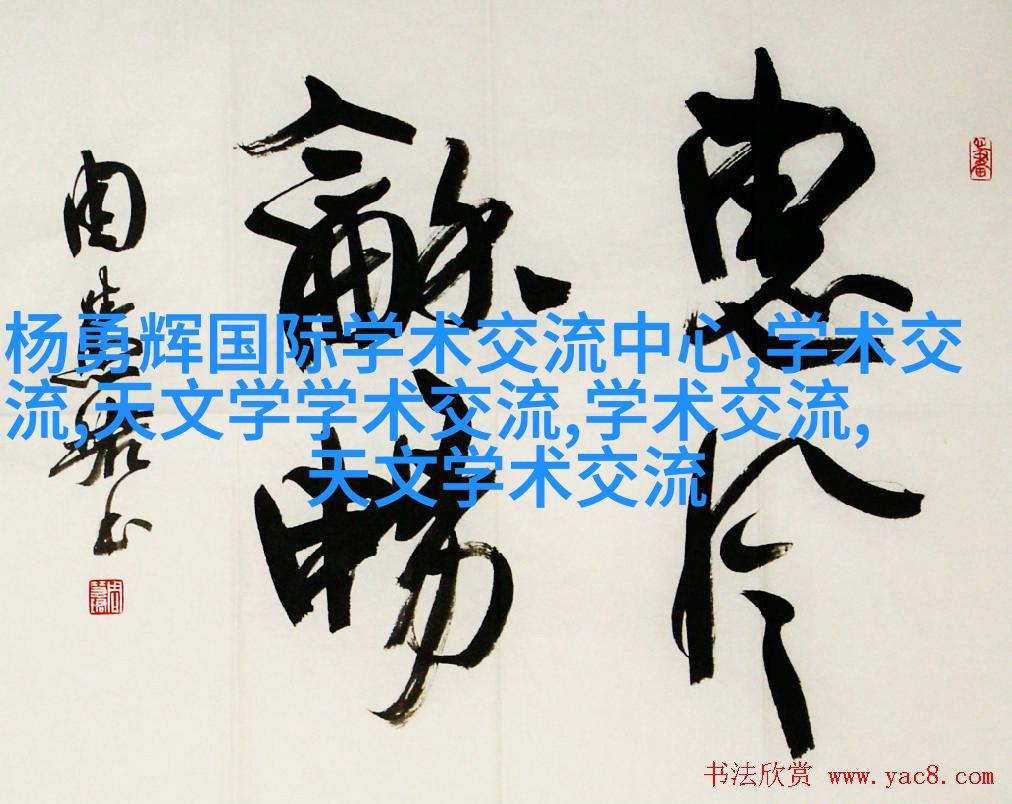 惠风
龢畅
周慧珺书
杨勇辉国际学术交流中心,学术交
流,天文学学术交流,学术交流,
天文学术交流
书法欣赏 www.yac8.com